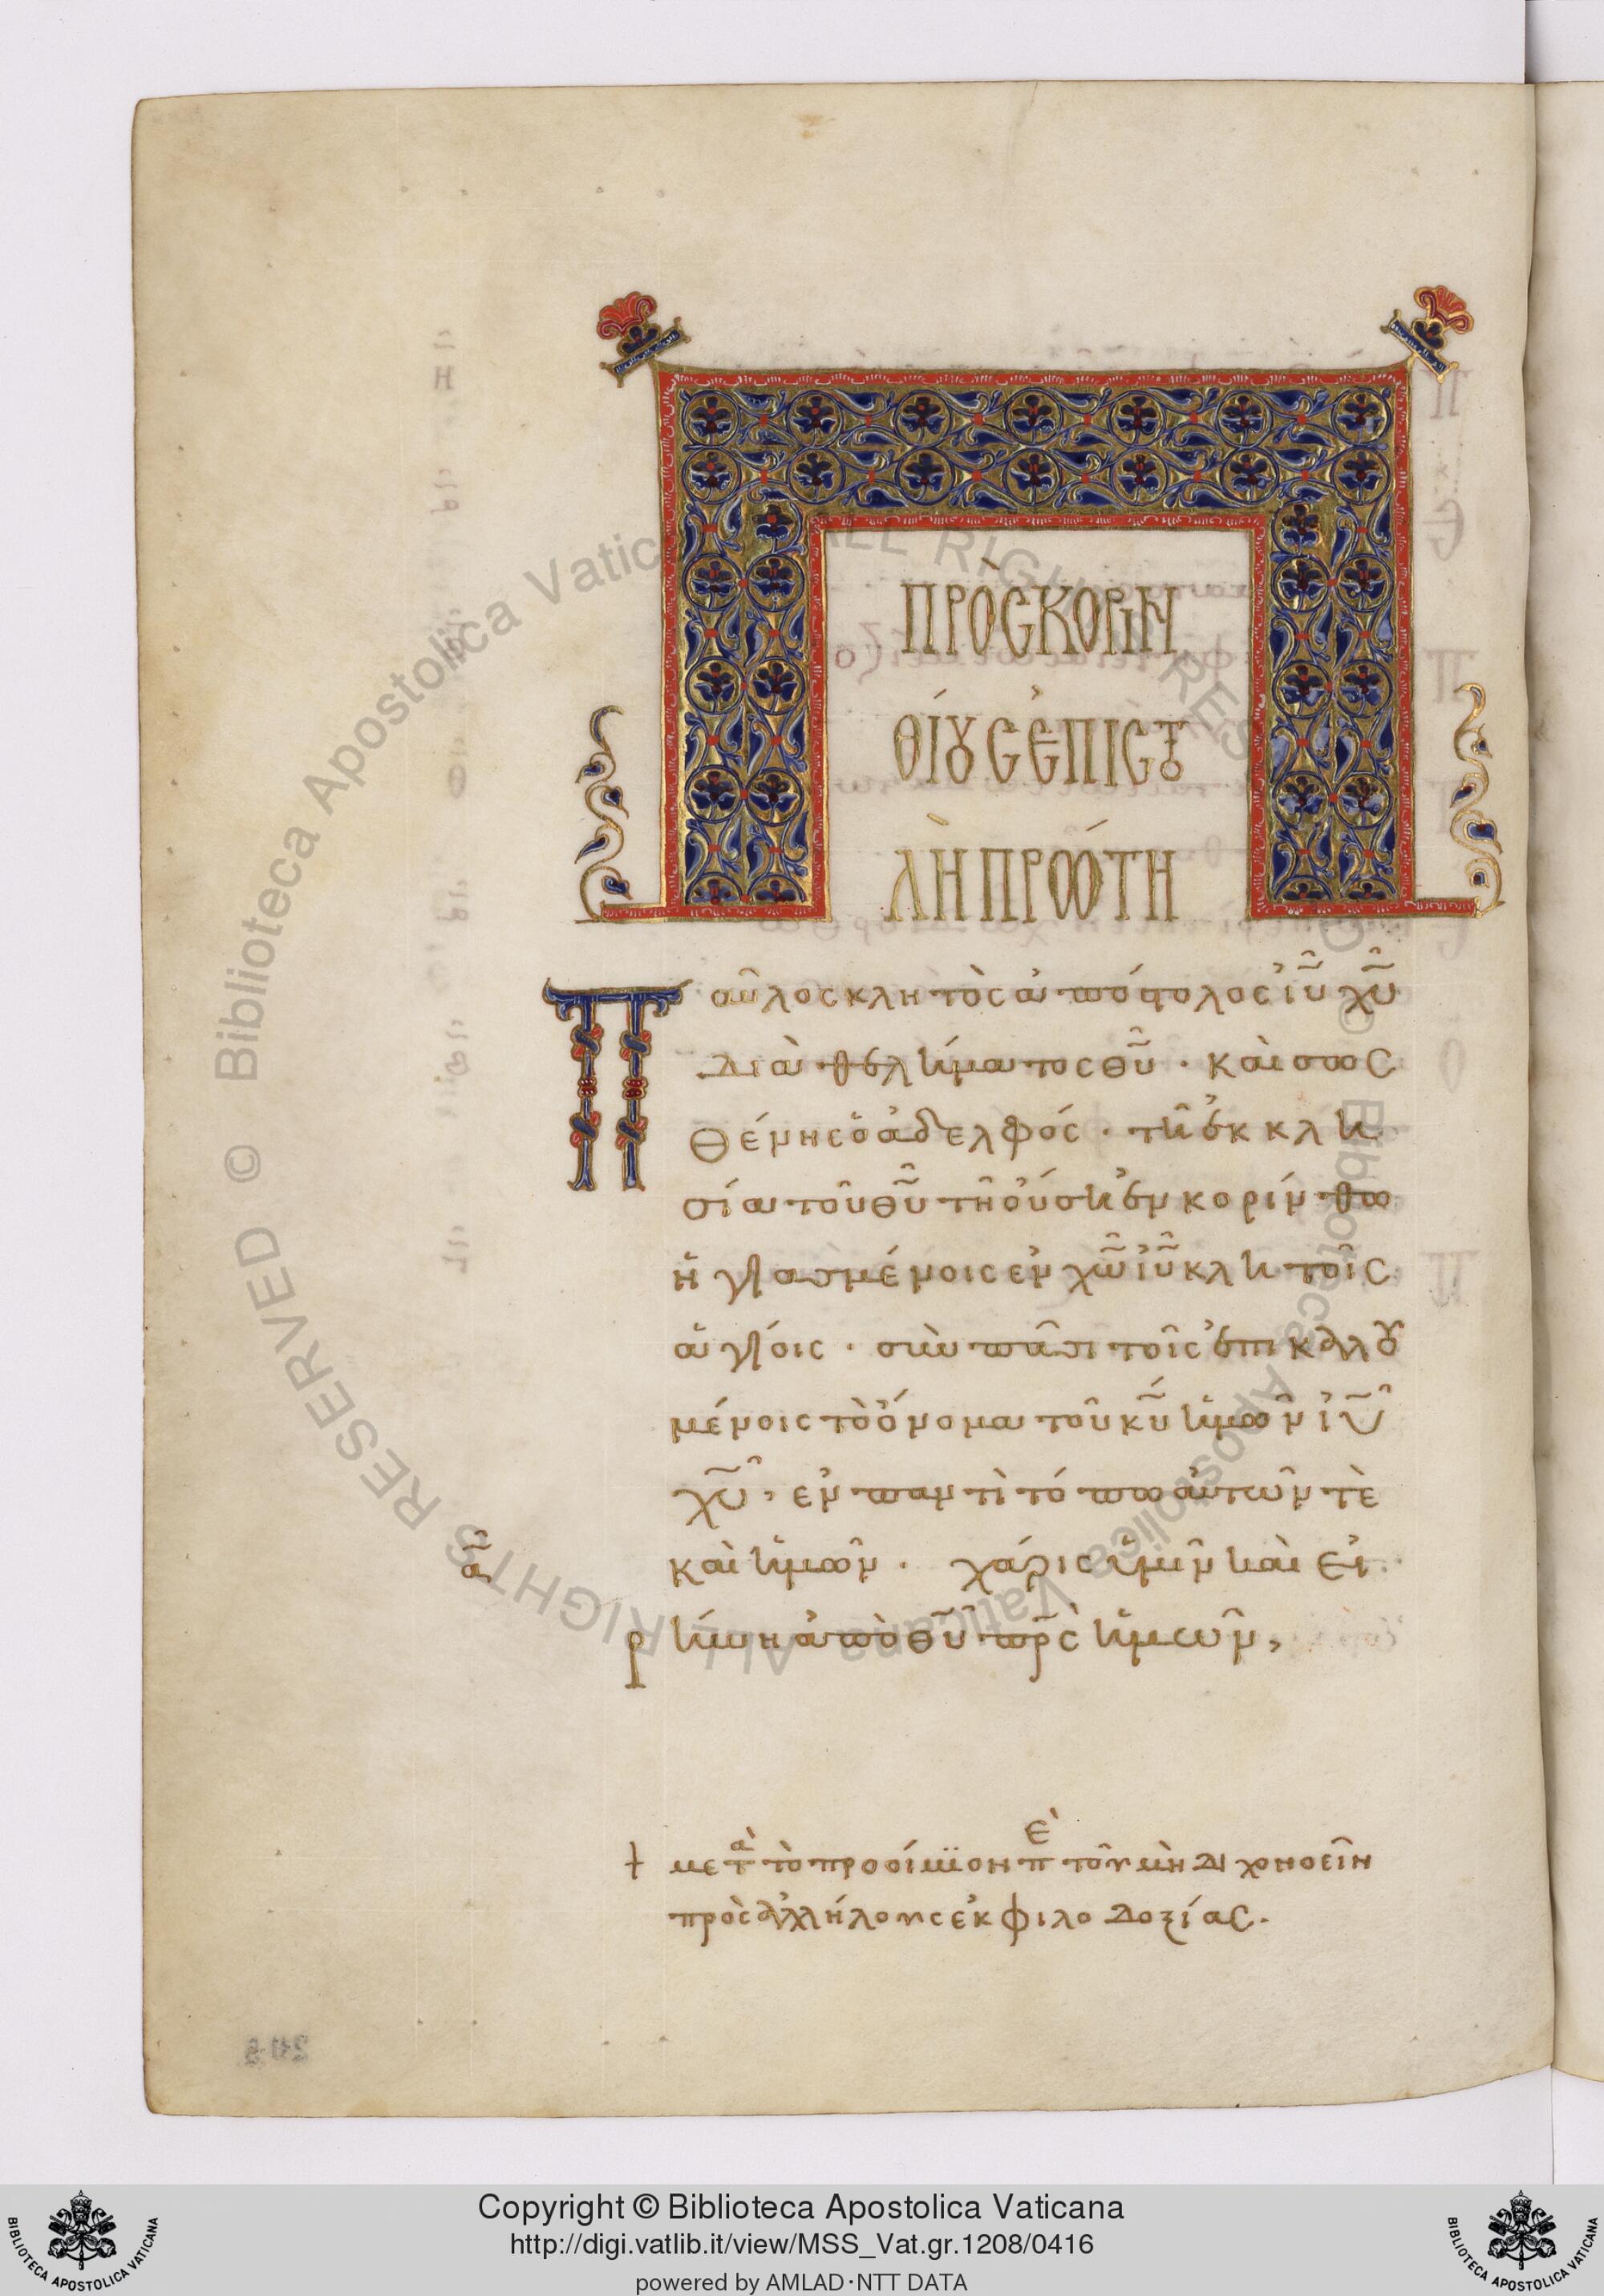 ΠΡῸϹΚΟΡΙΝ
ΘΊΟΥϹἘΠΙϹΤΟ
ΛῊΠΡΏΤΗ
Παῦλος κλητὸς ἀπόστολος ἰῦ χῦ
διὰ θελήματος θῦ · καὶ σωσ
θένης ὁ ἀδελφός · τῆ ἐκκλη
σία τοῦ θῦ τῆ οὔση ἐν κορίνθω
ἡγιασμένοις ἐν χω ἰῦ κλητοῖς
ἁγίοις · σὺν πᾶσι τοῖς ἐπικαλου
μένοις τὸ ὄνομα τοῦ κῦ ἡμῶν ἰῦ
χῦ, ἐν παντὶ τόπω αὐτῶν τὲ
α
καὶ ἡμῶν · χάρις ὑμῖν καὶ εἰ
ρήνη ἀπὸ θῦ πρς ἡμῶν,
ϯ μετὰ τὸ προοίμϊον πε τοῦ μὴ διχονοεῖν
πρὸς ἀλλήλους ἐκ φιλοδοξίας.
© Biblioteca Apostolica Vaticana ALL RIGHTS RESERVED
© Biblioteca Apostolica Vaticana ALL RIGHTS RESERVED
Copyright © Biblioteca Apostolica Vaticana
http://digi.vatlib.it/view/MSS_Vat.gr.1208/0416
powered by AMLAD·NTT DATA
BIBLIOTECA APOSTOLICA VATICANA
BIBLIOTECA APOSTOLICA VATICANA